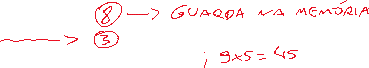 8 → GUARDA NA MEMÓRIA
→ 3
; 9x5=45